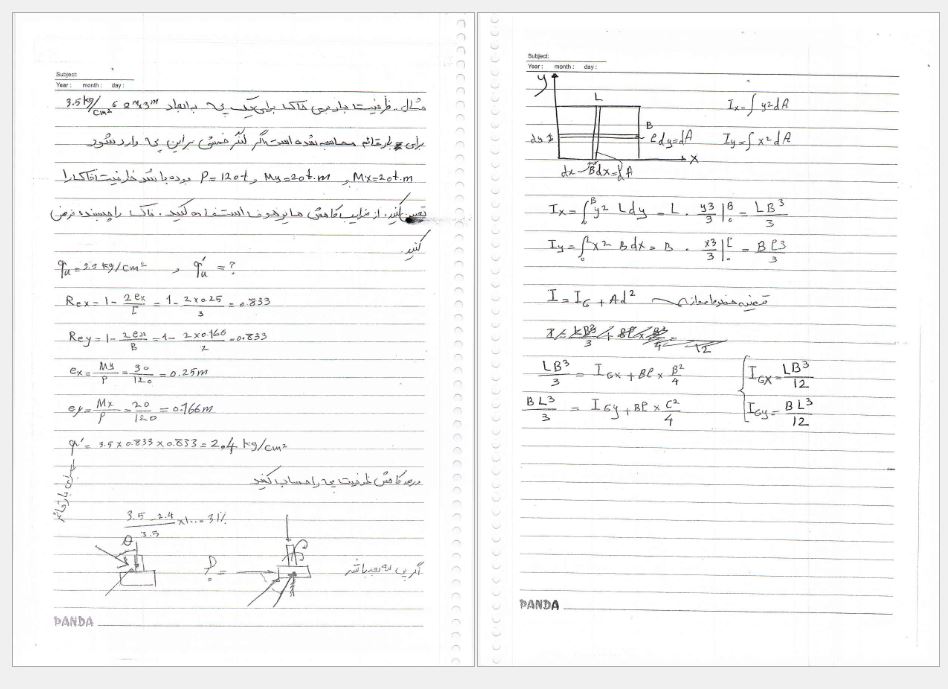 Subject:
Year : month : day :
مثال. ظرفیت باربری خاک برای یک پی به ابعاد 2m و 3m 3.5 kg/cm²
برای بار قائم محاسبه شده است اگر لنگر خمشی بر این پی وارد شود
Mx=20t.m و My=30t.m و P=120t بوده باشد ظرفیت خاک را
تعیین کنید. از ضرایب کاهش مایرهوف استفاده کنید. خاک را چسبنده فرض
کنید.
qu = kg/cm² , q'u = ?
Rex = 1 - 2ex/L = 1 - 2×0.25/3 = 0.833
Rey = 1 - /B = 1 - 2×0.166/2 = 0.833
ex = My/P = 30/120 = 0.25m
ey = Mx/P = 20/120 = 0.166m
q' = 3.5 × 0.833 × 0.833 = 2.4 kg/cm²
برای بار قائم
درصد کاهش ظرفیت پی را حساب کنید
3.5 - 2.4 / 3.5 × 100 = 31%
θ
P =
اگر پی باشد
PANDA
Subject:
Year : month : day :
y
L
B
dy
ldy = dA
x
dx
Bdx = dA
Ix = ∫ y² dA
Iy = ∫ x² dA
Ix = ∫₀ᴮ y² L dy = L . y³/3 |₀ᴮ = LB³/3
Iy = ∫₀ᴸ x² B dx = B . x³/3 |₀ᴸ = Bl³/3
I = IG + Ad² قضیه محورهای موازی
LB³/3 = IGx + Bl × B²/4
IGx = LB³/12
BL³/3 = IGy + Bl × L²/4
IGy = BL³/12
PANDA